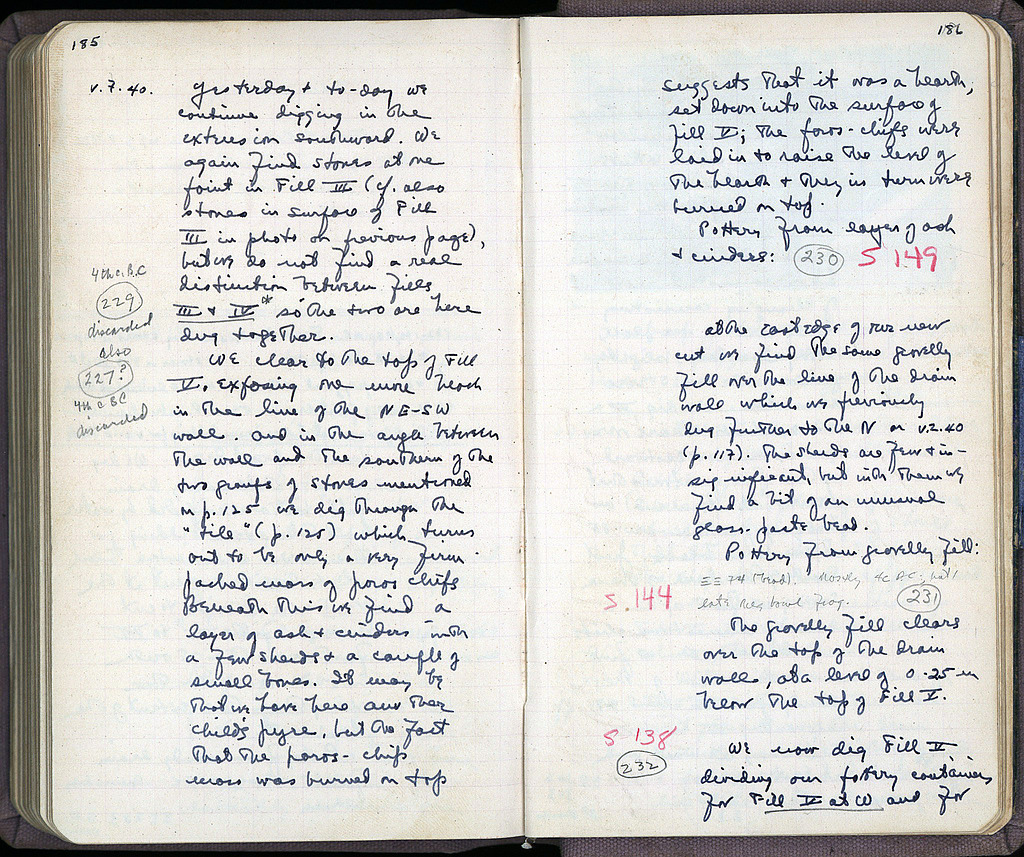 185
v.7.40.
Yesterday & to-day we
continue digging in the
extension southward. We
again find stones at one
point in Fill III (cf. also
stones in surface of Fill
III in photo on previous page),
but we do not find a real
distinction between fills
III & IV* so the two are here
dug together.
We clear to the top of Fill
V, exposing one more block
in the line of the NE-SW
wall. And in the angle between
the wall and the southern of the
two groups of stones mentioned
on p. 125 we dig through the
"tile" (p. 125) which turns
out to be only a very firm
packed mass of poros chips
Beneath this we find a
layer of ash & cinders with
a few sherds & a couple of
small bones. It may be
that we have here another
child's pyre, but the fact
that the poros-chip
mass was burned on top
4th c. B.C
229
discarded
also
227?
4th c BC
discarded
186
suggests that it was a hearth,
set down into the surface of
fill V; the poros-chips were
laid in to raise the level of
the hearth & they in turn were
burned on top.
Pottery from layer of ash
& cinders: 230 S 149
at the east edge of our new
cut we find the same gravelly
fill over the line of the drain
wall which we previously
dug further to the N on v.2.40
(p. 117). The sherds are few & in-
significant, but with them we
find a bit of an unusual
glass paste bead.
Pottery from gravelly fill:
ΞΞ 74 (bead) Mostly 4c BC;
S 144 late Meg. bowl frag. 231
The gravelly fill clears
over the top of the drain
walls, at a level of 0.25 m
below the top of Fill V.
S 138
232 We now dig Fill V
dividing our pottery containers
for Fill V at W and for